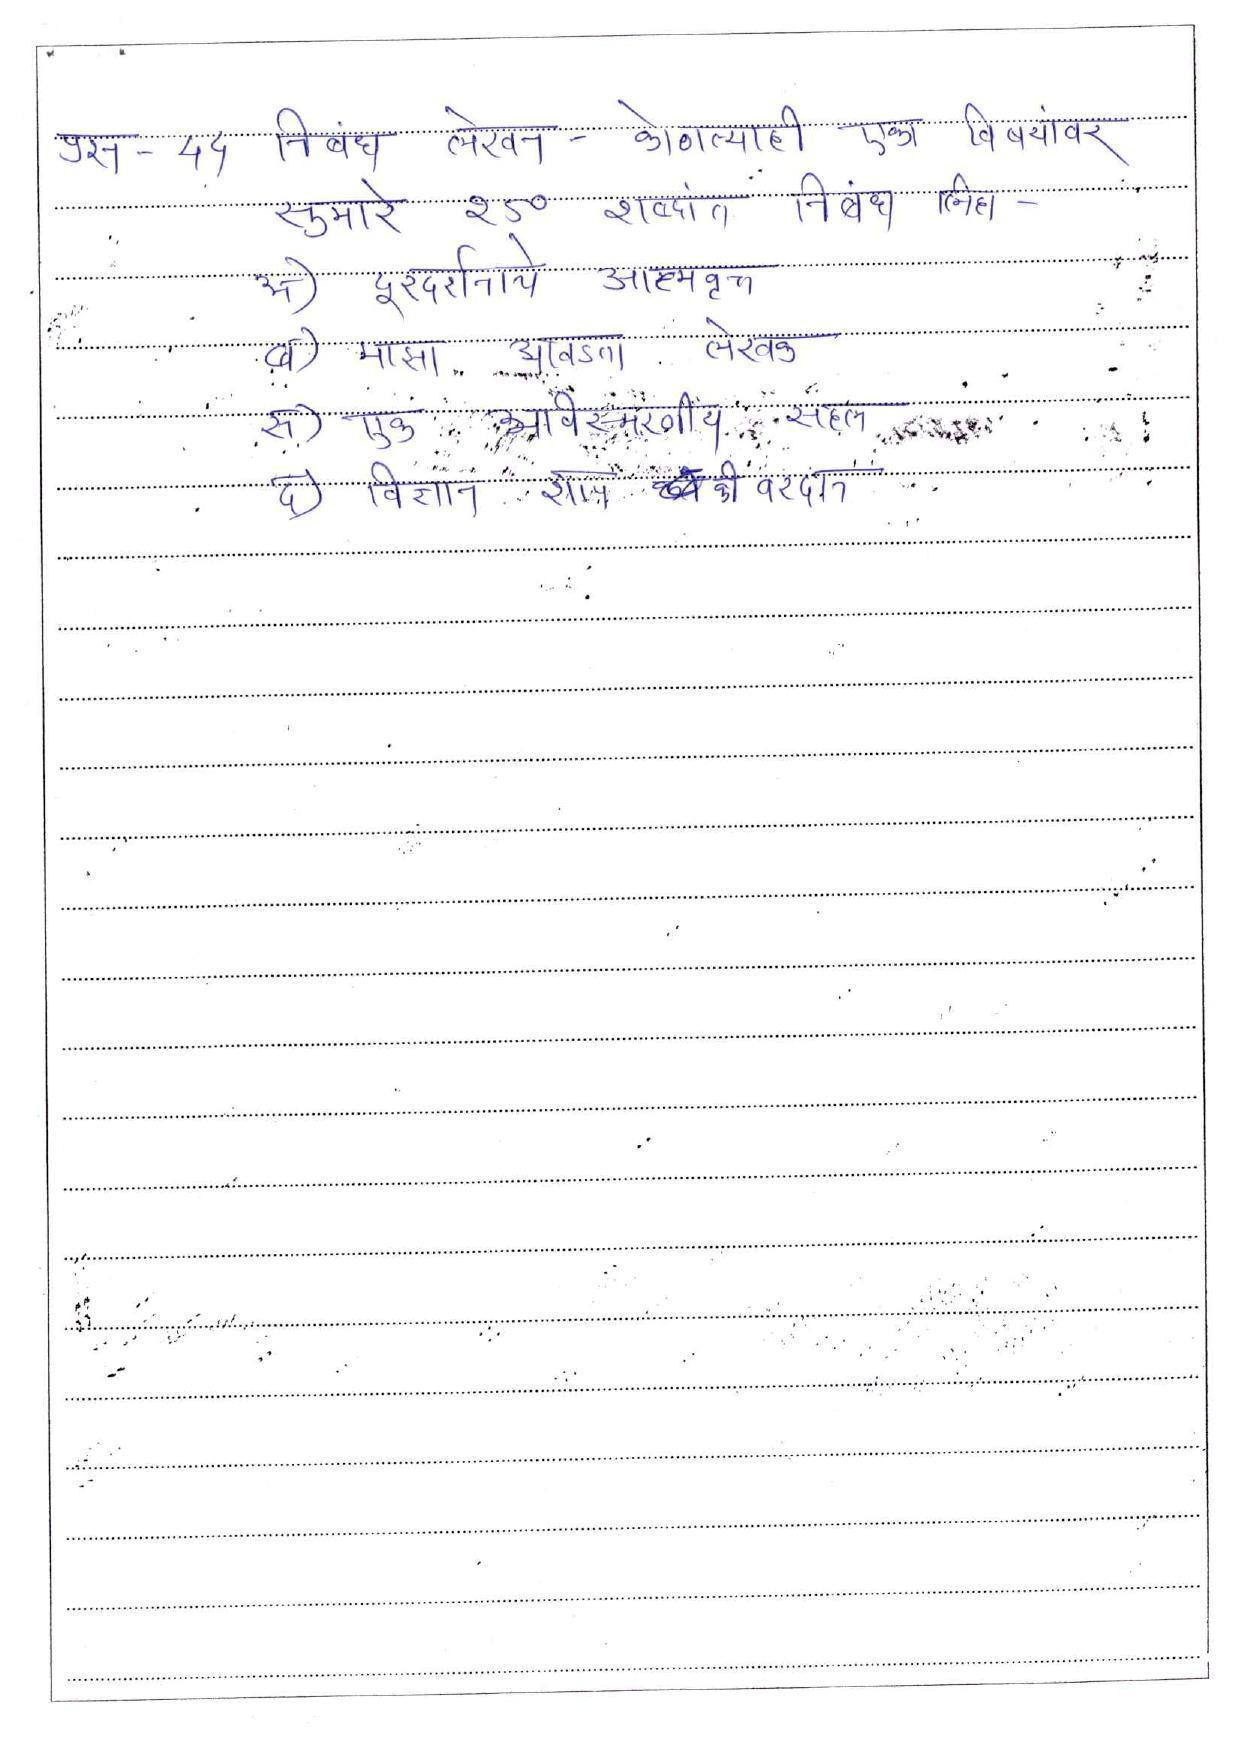 प्रश्न - ५५ निबंध लेखन - कोणत्याही एका विषयांवर
सुमारे २५० शब्दांत निबंध लिहा -
अ) दूरदर्शनाचे आत्मवृत्त
ब) माझा आवडता लेखक
स) एक अविस्मरणीय सहल
द) विज्ञान शाप की वरदान